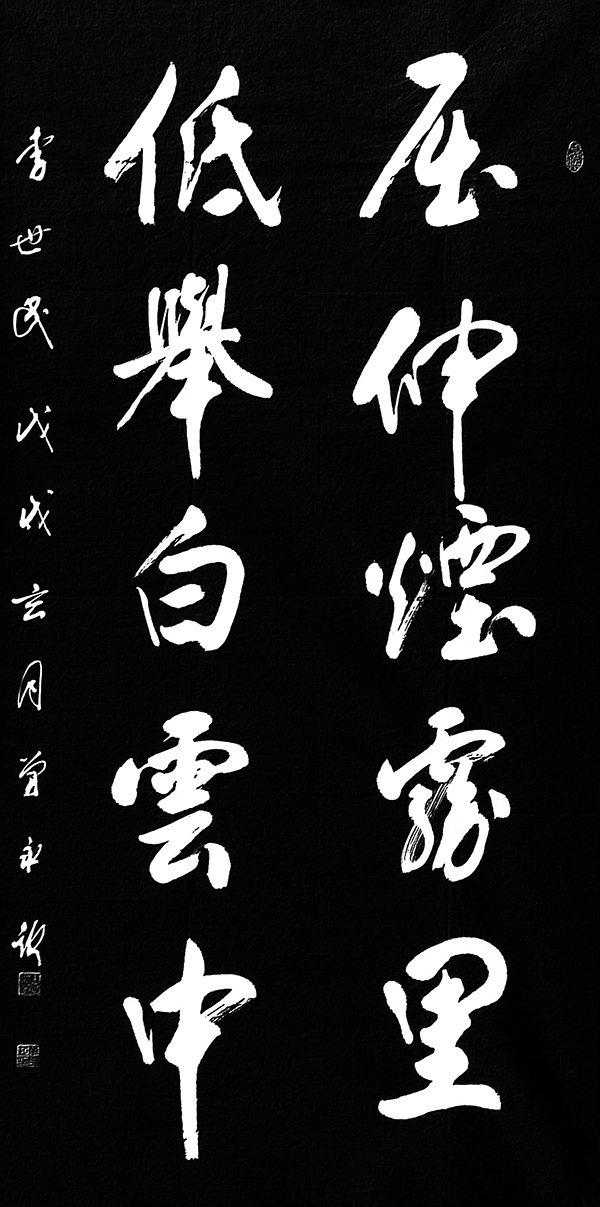 屈伸煙霧里
低舉白雲中
李世民 戊戌玄月曾永